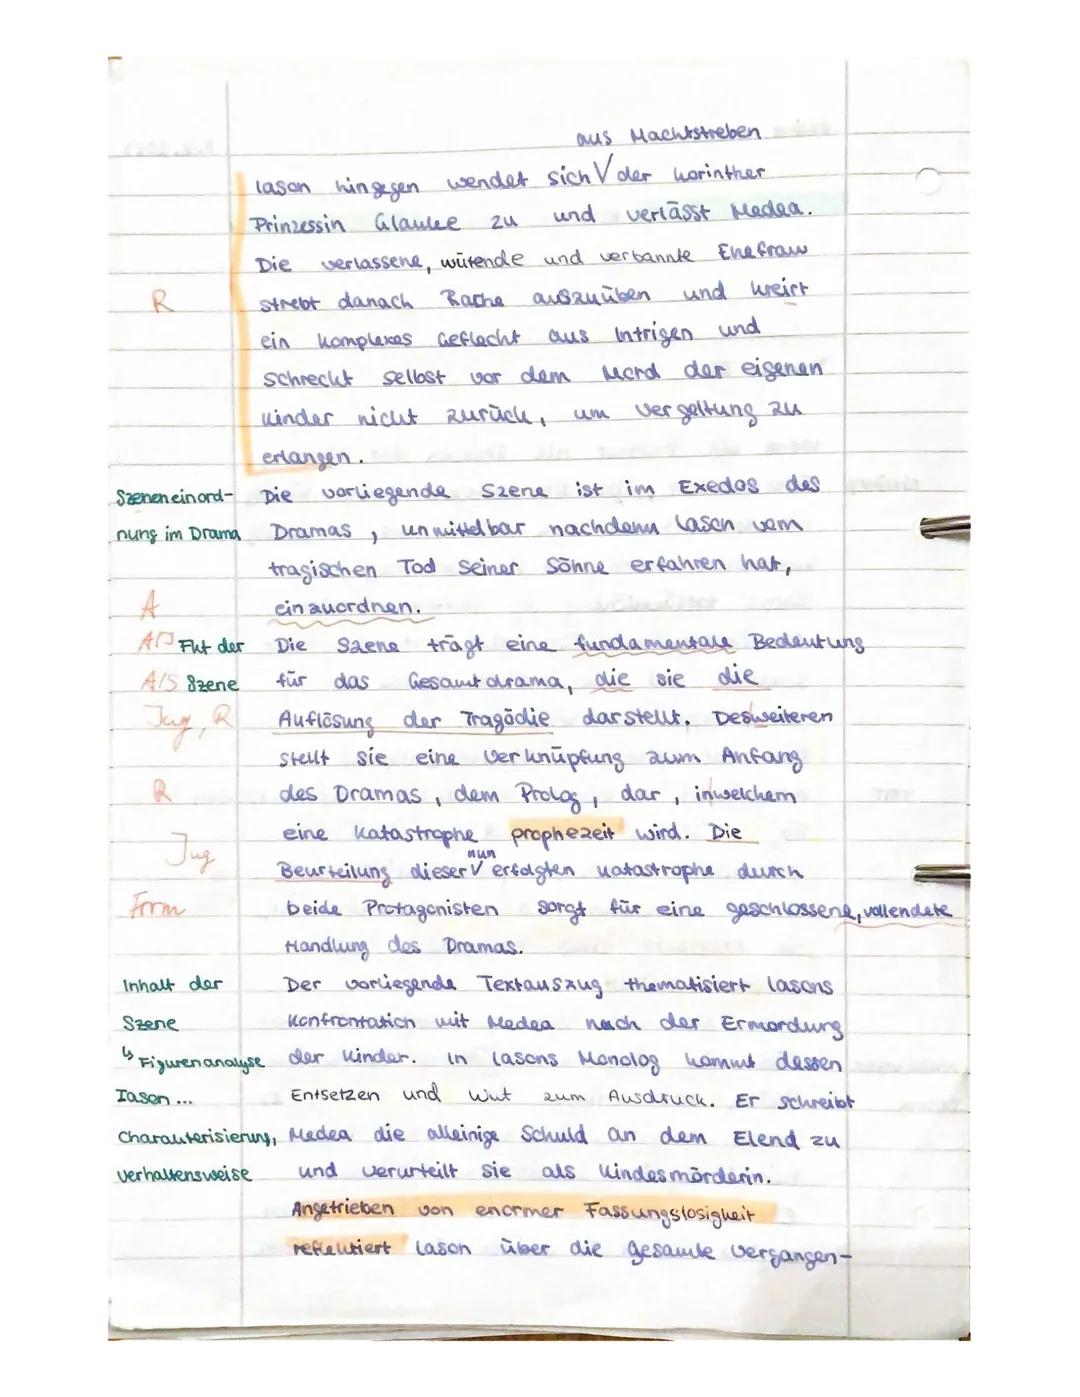 aus Machtstreben
Iason hingegen wendet sich V der Korinther
Prinzessin Glauke zu und verlässt Medea.
Die verlassene, wütende und verbannte Ehefrau
R strebt danach Rache auszuüben und kreirt
ein komplexes Geflecht aus Intrigen und
schreckt selbst vor dem Mord der eigenen
Kinder nicht zurück, um Vergeltung zu
erlangen.
Szeneneinord- Die vorliegende Szene ist im Exodos des
nung im Drama Dramas, unmittelbar nachdem Iason vom
tragischen Tod seiner Söhne erfahren hat,
A einzuordnen.
A Fkt der Die Szene trägt eine fundamentale Bedeutung
A/S Szene für das Gesamtdrama, die sie die
Jug, R Auflösung der Tragödie darstellt. Desweiteren
stellt sie eine Verknüpfung zum Anfang
R des Dramas, dem Prolog, dar, inwelchem
eine Katastrophe prophezeit wird. Die
nun
Jug Beurteilung dieser V erfolgten Katastrophe durch
Form beide Protagonisten sorgt für eine geschlossene, vollendete
Handlung des Dramas.
Inhalt der Der vorliegende Textauszug thematisiert Iasons
Szene Konfrontation mit Medea nach der Ermordung
↳ Figurenanalyse der Kinder. In Iasons Monolog kommt dessen
Iason ... Entsetzen und Wut zum Ausdruck. Er schreibt
Charakterisierung, Medea die alleinige Schuld an dem Elend zu
Verhaltensweise und verurteilt sie als Kindesmörderin.
Angetrieben von enormer Fassungslosigkeit
reflektiert Iason über die gesamte Vergangen-